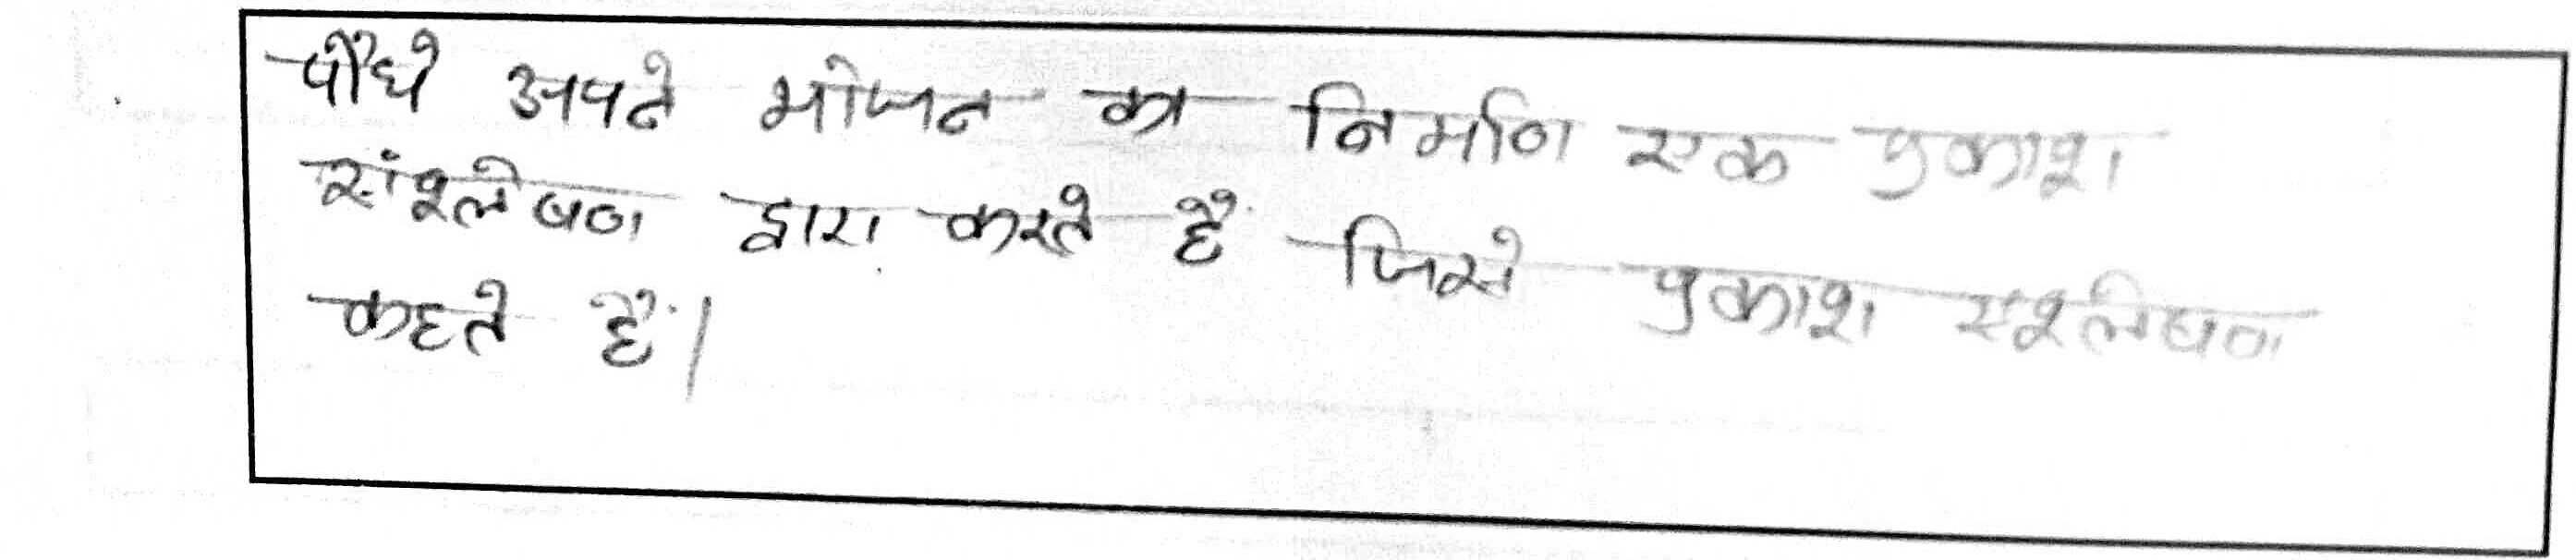 पौधे अपने भोजन का निर्माण एक प्रकाश
संश्लेषण द्वारा करते हैं जिसे प्रकाश संश्लेषण
कहते हैं|